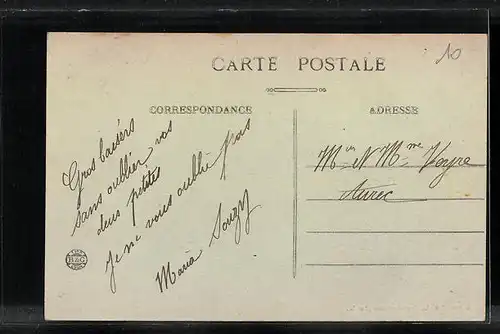 10
CARTE POSTALE
CORRESPONDANCE
ADRESSE
Gros baisers
sans oublier vos
deux petites
Je ne vous oublie pas
Maria Souzy
Mr et Mme Veyre
Aurec
B&G